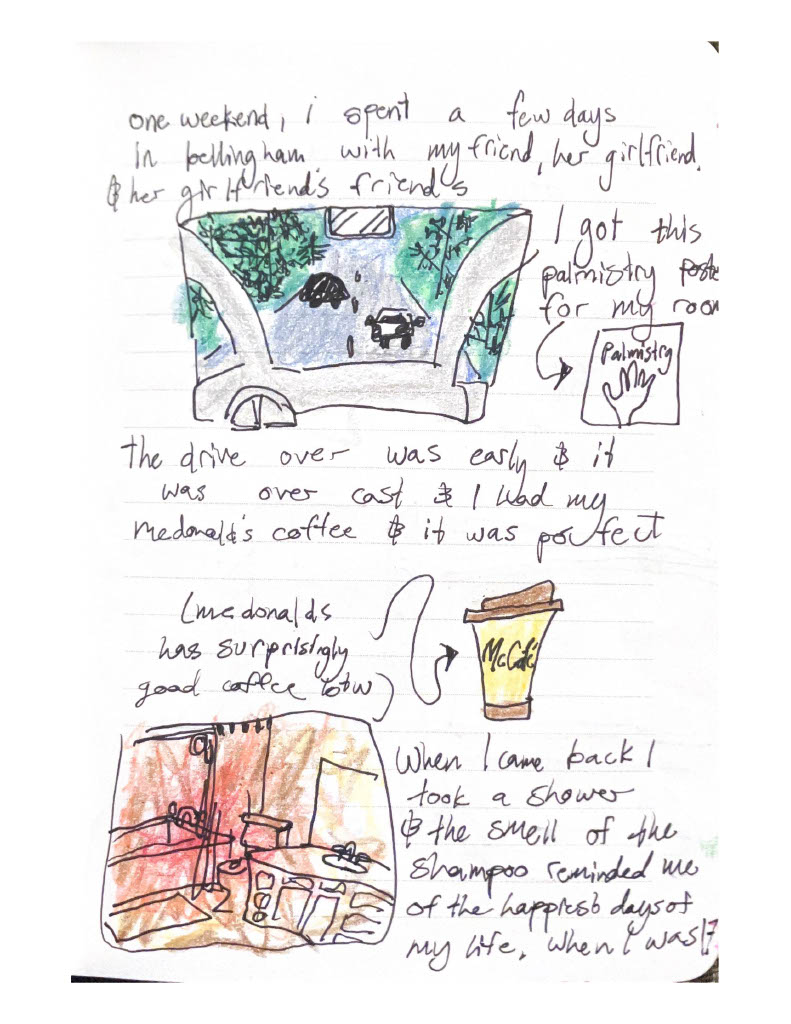 one weekend, i spent a few days
in bellingham with my friend, her girlfriend,
& her girlfriend's friends
I got this
palmistry poste
for my room
Palmistry
the drive over was early & it
was over cast & I had my
mcdonald's coffee & it was perfect
(mcdonalds
has surprisingly
good coffee btw)
McCafé
When I came back I
took a shower
& the smell of the
shampoo reminded me
of the happiest days of
my life. when I was 17